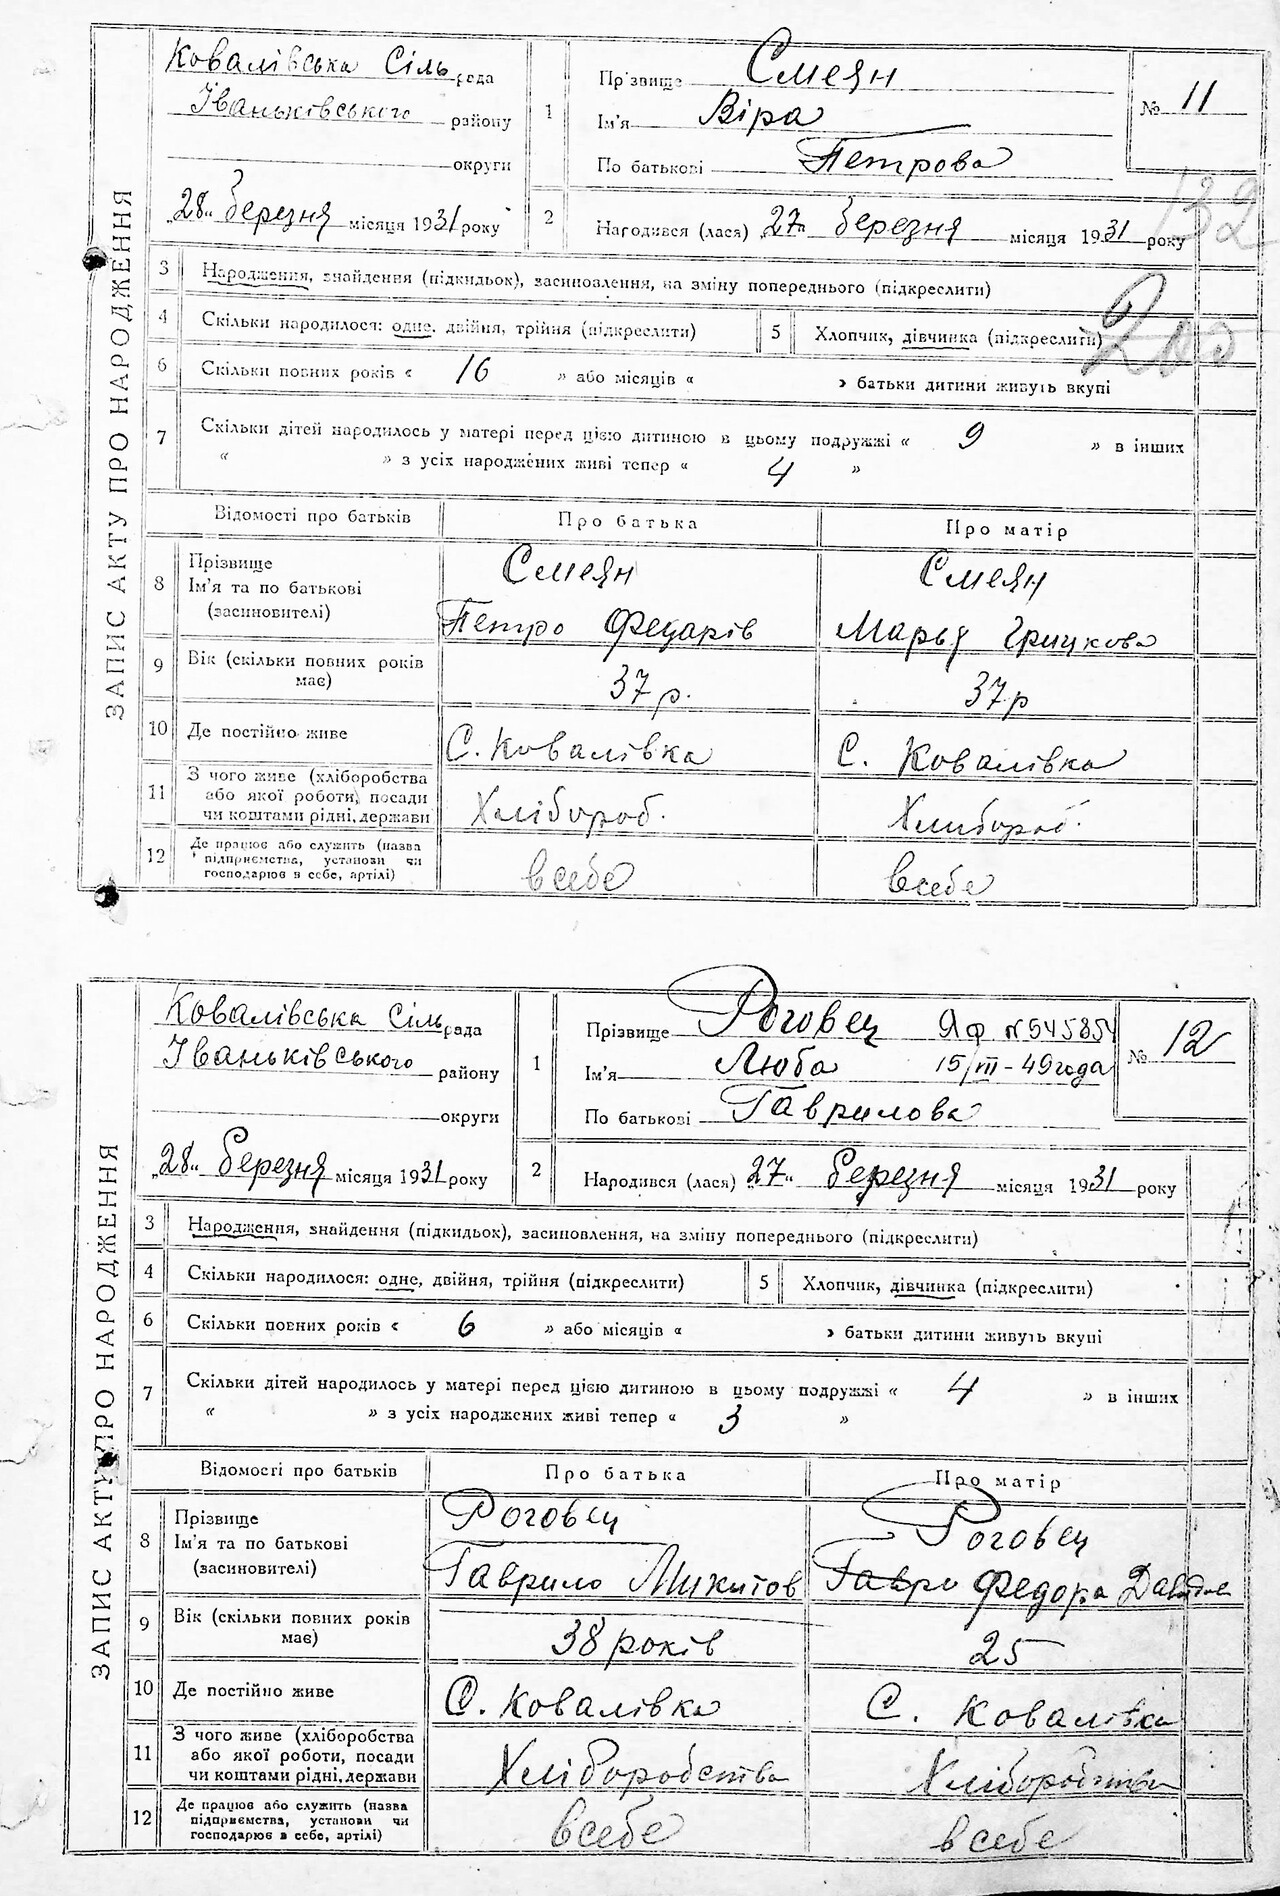 ЗАПИС АКТУ ПРО НАРОДЖЕННЯ
Ковалівська Сіль рада
Іваньківського району
округи
28" березня місяця 1931 року
1 Прізвище Смеян
Ім'я Віра
По батькові Петрова
№ 11
132
2 Народився (лася) 27" березня місяця 1931 року
3 Народження, знайдення (підкидьок), засиновлення, на зміну попереднього (підкреслити)
4 Скільки народилося: одне, двійня, трійня (підкреслити) 5 Хлопчик, дівчинка (підкреслити)
6 Скільки повних років « 16 » або місяців « » батьки дитини живуть вкупі
7 Скільки дітей народилось у матері перед цією дитиною в цьому подружжі « 9 » в інших
« » з усіх народжених живі тепер « 4 »
Відомості про батьків Про батька Про матір
8 Прізвище Смеян Смеян
Ім'я та по батькові
(засиновителі) Петро Федарів Марья Грицкова
9 Вік (скільки повних років
має) 37 р. 37 р
10 Де постійно живе С. Ковалівка С. Ковалівка
11 З чого живе (хліборобства
або якої роботи, посади
чи коштами рідні, держави Хлібороб. Хлибороб.
12 Де працює або служить (назва
підприємства, установи чи
господарює в себе, артілі) всебе всебе
ЗАПИС АКТУ ПРО НАРОДЖЕННЯ
Ковалівська Сіль рада
Іваньківського району
округи
28" березня місяця 1931 року
1 Прізвище Роговец Яф №545854
Ім'я Люба 15/III - 49 года
По батькові Гаврилова
№ 12
2 Народився (лася) 27" березня місяця 1931 року
3 Народження, знайдення (підкидьок), засиновлення, на зміну попереднього (підкреслити)
4 Скільки народилося: одне, двійня, трійня (підкреслити) 5 Хлопчик, дівчинка (підкреслити)
6 Скільки повних років « 6 » або місяців « » батьки дитини живуть вкупі
7 Скільки дітей народилось у матері перед цією дитиною в цьому подружжі « 4 » в інших
« » з усіх народжених живі тепер « 3 »
Відомості про батьків Про батька Про матір
8 Прізвище Роговец Роговец
Ім'я та по батькові
(засиновителі) Гаврило Микитов Гаври Федора
9 Вік (скільки повних років
має) 38 років 25
10 Де постійно живе С. Ковалівка С. Ковалівка
11 З чого живе (хліборобства
або якої роботи, посади
чи коштами рідні, держави Хліборобства Хліборобства
12 Де працює або служить (назва
підприємства, установи чи
господарює в себе, артілі) всебе всебе